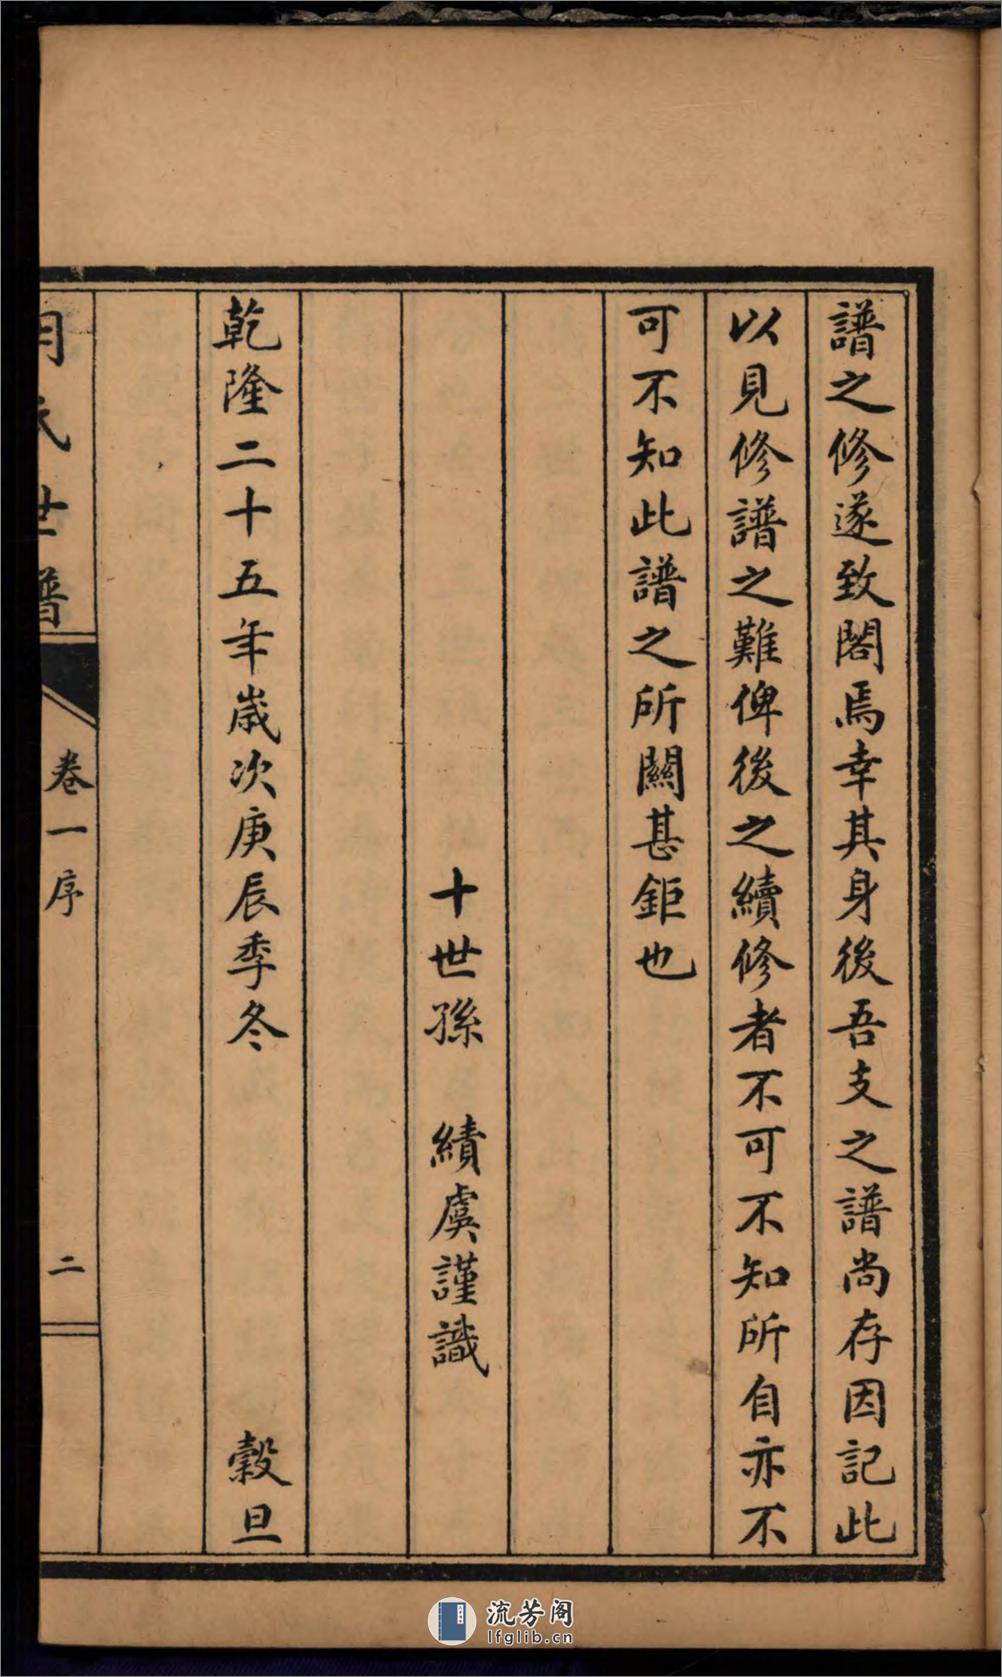 譜之修遂致閣焉幸其身後吾支之譜尚存因記此
以見修譜之難俾後之續修者不可不知所自亦不
可不知此譜之所關甚鉅也
十世孫 績虞謹識
乾隆二十五年歲次庚辰季冬 穀旦
氏世譜 卷一序 二
流芳阁
lfglib.cn